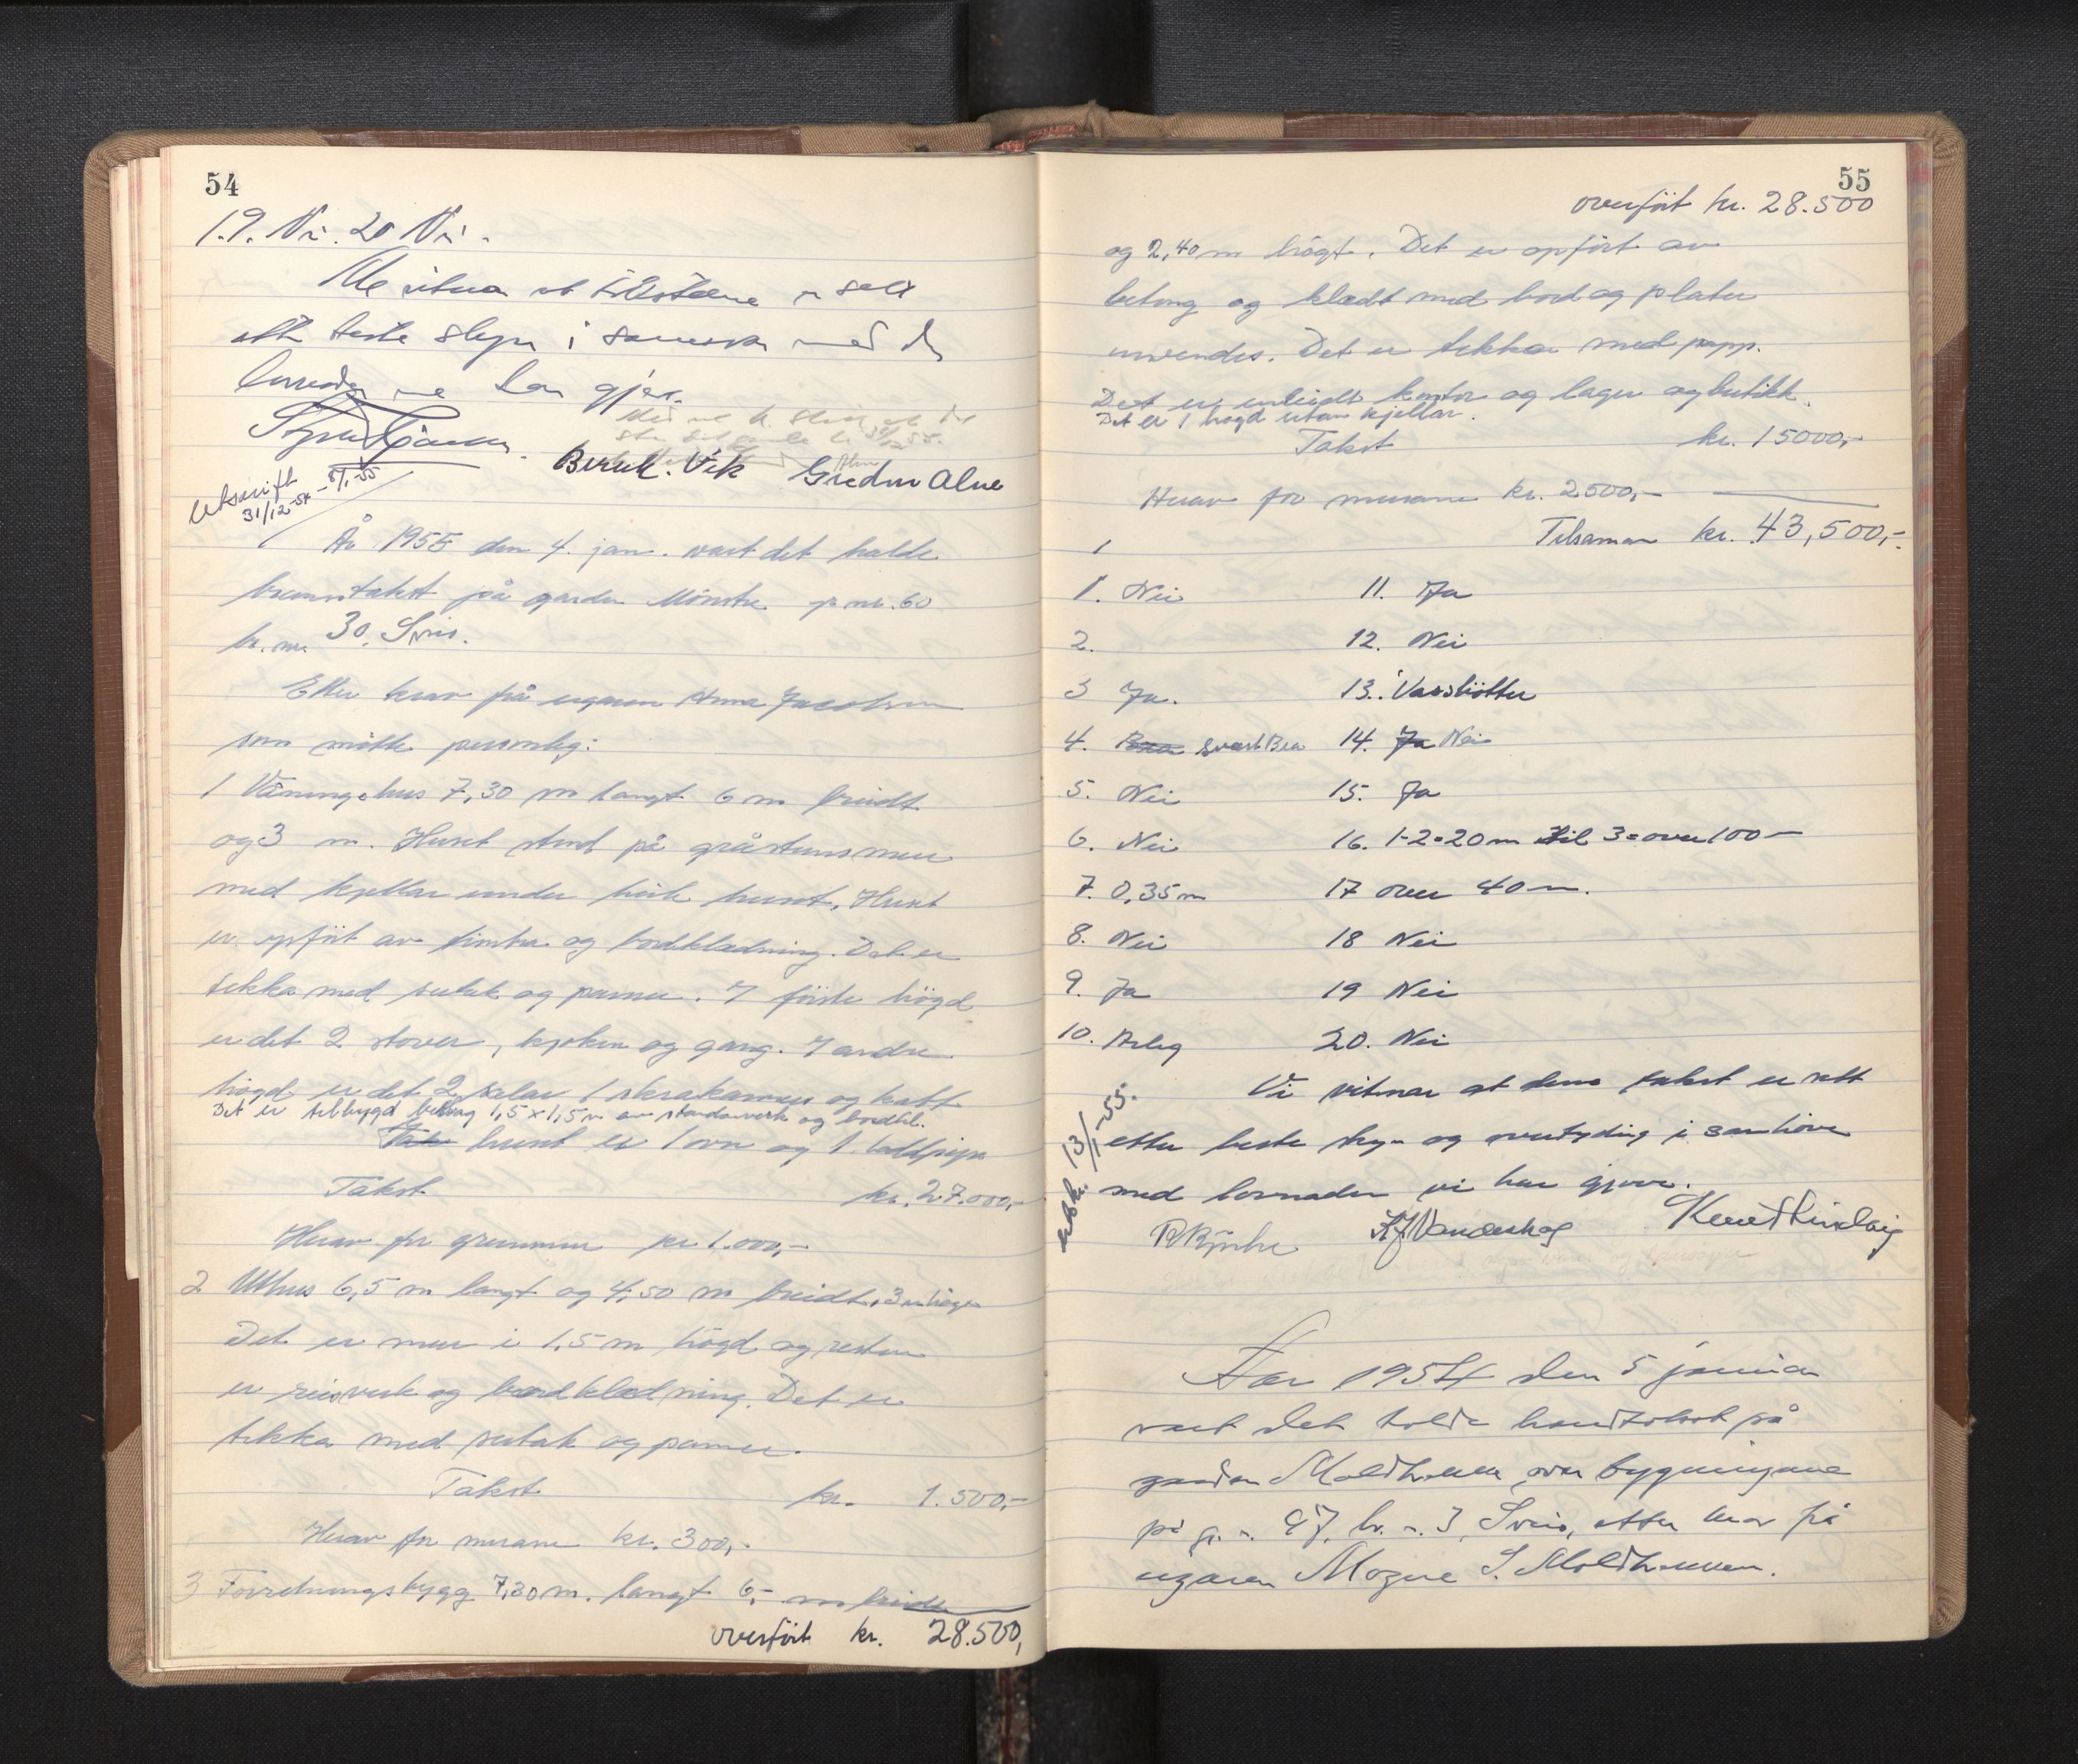 54
19. Nei. 20 Nei.
Me vitnar at tilstelne er sett
ette beste skyn i samsvar med
lovnader me har gjer.
Bernh. Vik Gudm Alne
Utskrift
31/12-54 - 5/1-55
År 1955 den 4. jan. vart det halde
branntakst på garden Mönstre g. nr. 60
br. nr. 30. Sveio.
Etter krav frå eigaren Anna Jacobsen
som mötte personleg:
1 Våningshus 7,30 m langt 6 m breidt
og 3 m. Huset stend på gråsteinsmur
med kjellar under heile huset. Huset
er uppfört av timber og bordkledning. Det er
tekka med sutak og panner. I förste högd
er det 2 stover, kjøken og gang. I andre
högd er det 2 salar 1 skråkammer og kott
Det er tilbygd bislag 1,5 x 1,5 m av standarverk og bordkl.
huset er 1 ovn og 1 teglpipe
Takst kr. 27.000,-
Herav for grunnmur kr 1.000,-
2 Uthus 6,5 m langt og 4,50 m breidt, 3 m högd
Det er mur i 1,5 m högd og resten
er reisverk og bordkledning. Det er
tekka med sutak og panner.
Takst kr. 1.500,-
Herav for murane kr. 300,-
3 Forretningsbygg 7,30 m. langt 6,- m breidt
overfört kr. 28.500,
55
overfört kr. 28.500
og 2,40 m högt. Det er opfört av
betong og kledt med bord og plater
innvendes. Det er tekka med papp.
Det er innreidt kontor og lager og butikk.
Det er 1 högd utan kjellar.
Takst kr. 15000,-
Herav for murane kr. 2500,-
Tilsaman kr. 43,500,-
1. Nei 11. Ja
2. 12. Nei
3 Ja. 13. Vassbötter
4. Bra Svært Bra 14. Ja Nei
5. Nei 15. Ja
6. Nei 16. 1-2=20 m til 3=over 100 -
7. 0,35 m 17 over 40 m.
8. Nei 18 Nei
9. Ja 19 Nei
10. Årleg 20. Nei
Vi vitnar at denne takst er sett
etter beste skyn og overtyding i samhöve
med lovnader vi har gjeve.
utsk. 13/1-55.
Knut Lindøig
Aar 1954 den 5 januar
vart det holde branntakst på
garden Moldhaum over bygningane
på g. n. 97, br. n. 3, Sveio, etter krav frå
eigaren Mogne S. Moldhaumen.